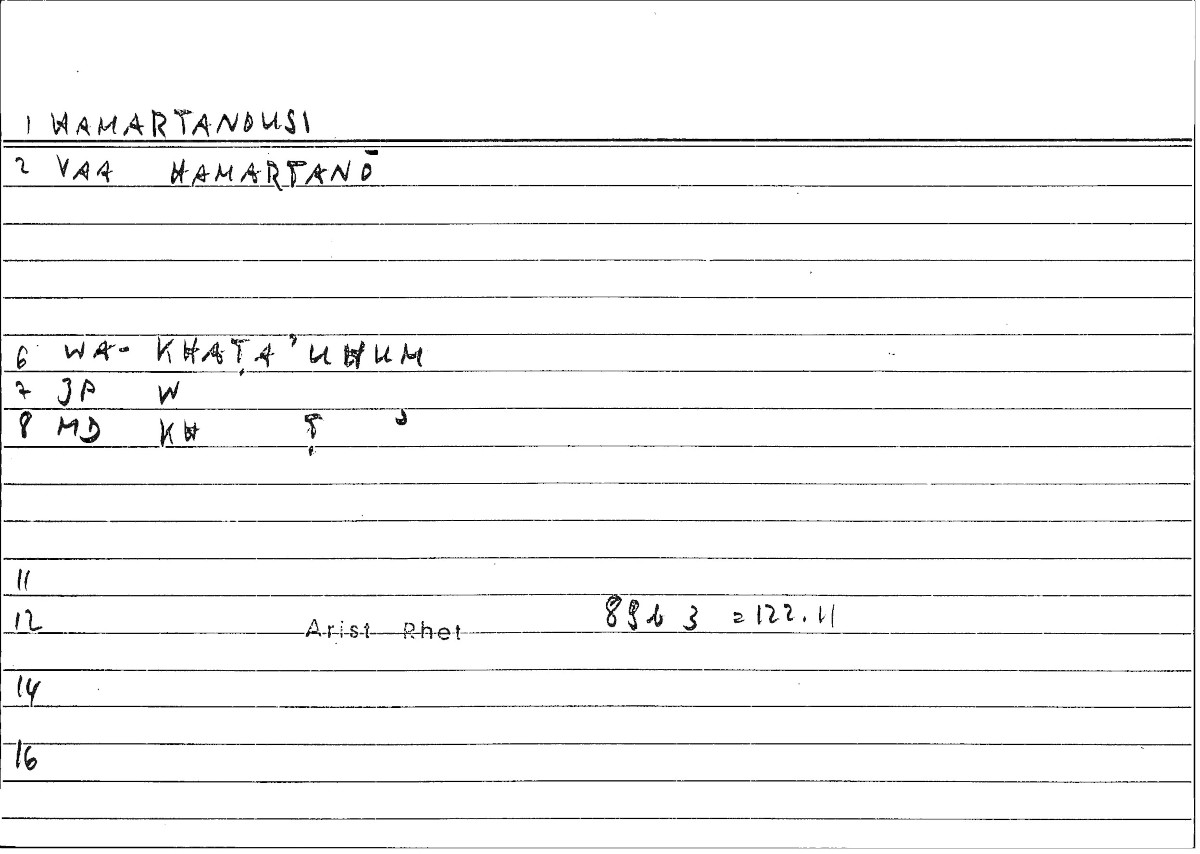 1 HAMARTANOUSI
2 VAA HAMARTANŌ
6 WA- KHAṬA'UHUM
7 3P W
8 MD KH Ṭ '
11
12 Arist Rhet 89b 3 =122.11
14
16